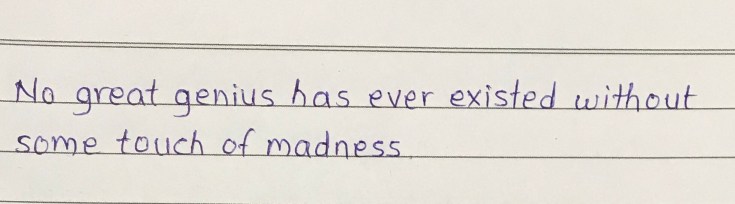 No great genius has ever existed without
some touch of madness.